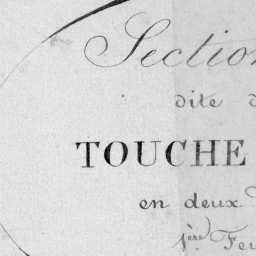 Section
dite d
TOUCHE
en deux
1ère Feu